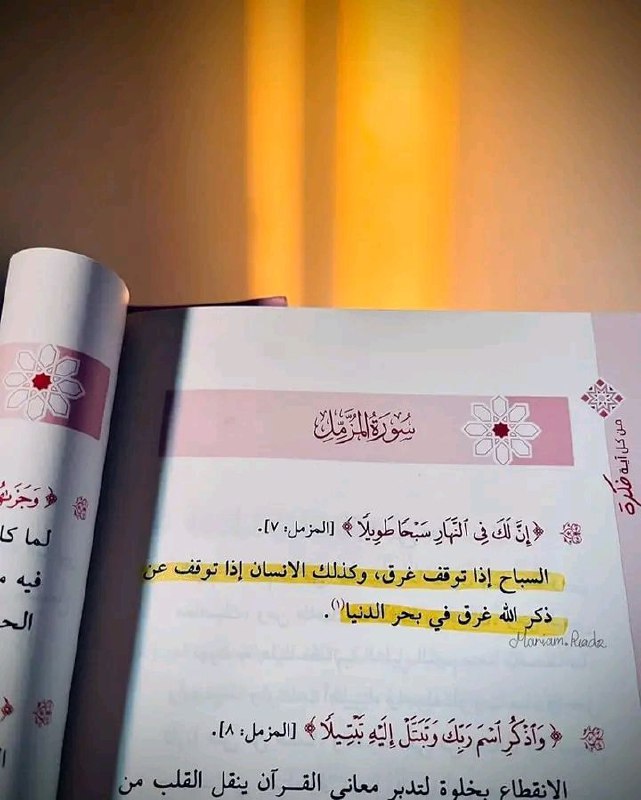 سُورَةُ المُزَّمِّل
من كل آية فكرة
﴿إِنَّ لَكَ فِي ٱلنَّهَارِ سَبْحًا طَوِيلًا﴾ [المزمل: ٧].
السباح إذا توقف غرق، وكذلك الانسان إذا توقف عن
ذكر الله غرق في بحر الدنيا(١).
Mariam.Reads
﴿وَٱذْكُرِ ٱسْمَ رَبِّكَ وَتَبَتَّلْ إِلَيْهِ تَبْتِيلًا﴾ [المزمل: ٨].
الانقطاع بخلوة لتدبر معاني القـرآن ينقل القلب من
لما كا
فيه